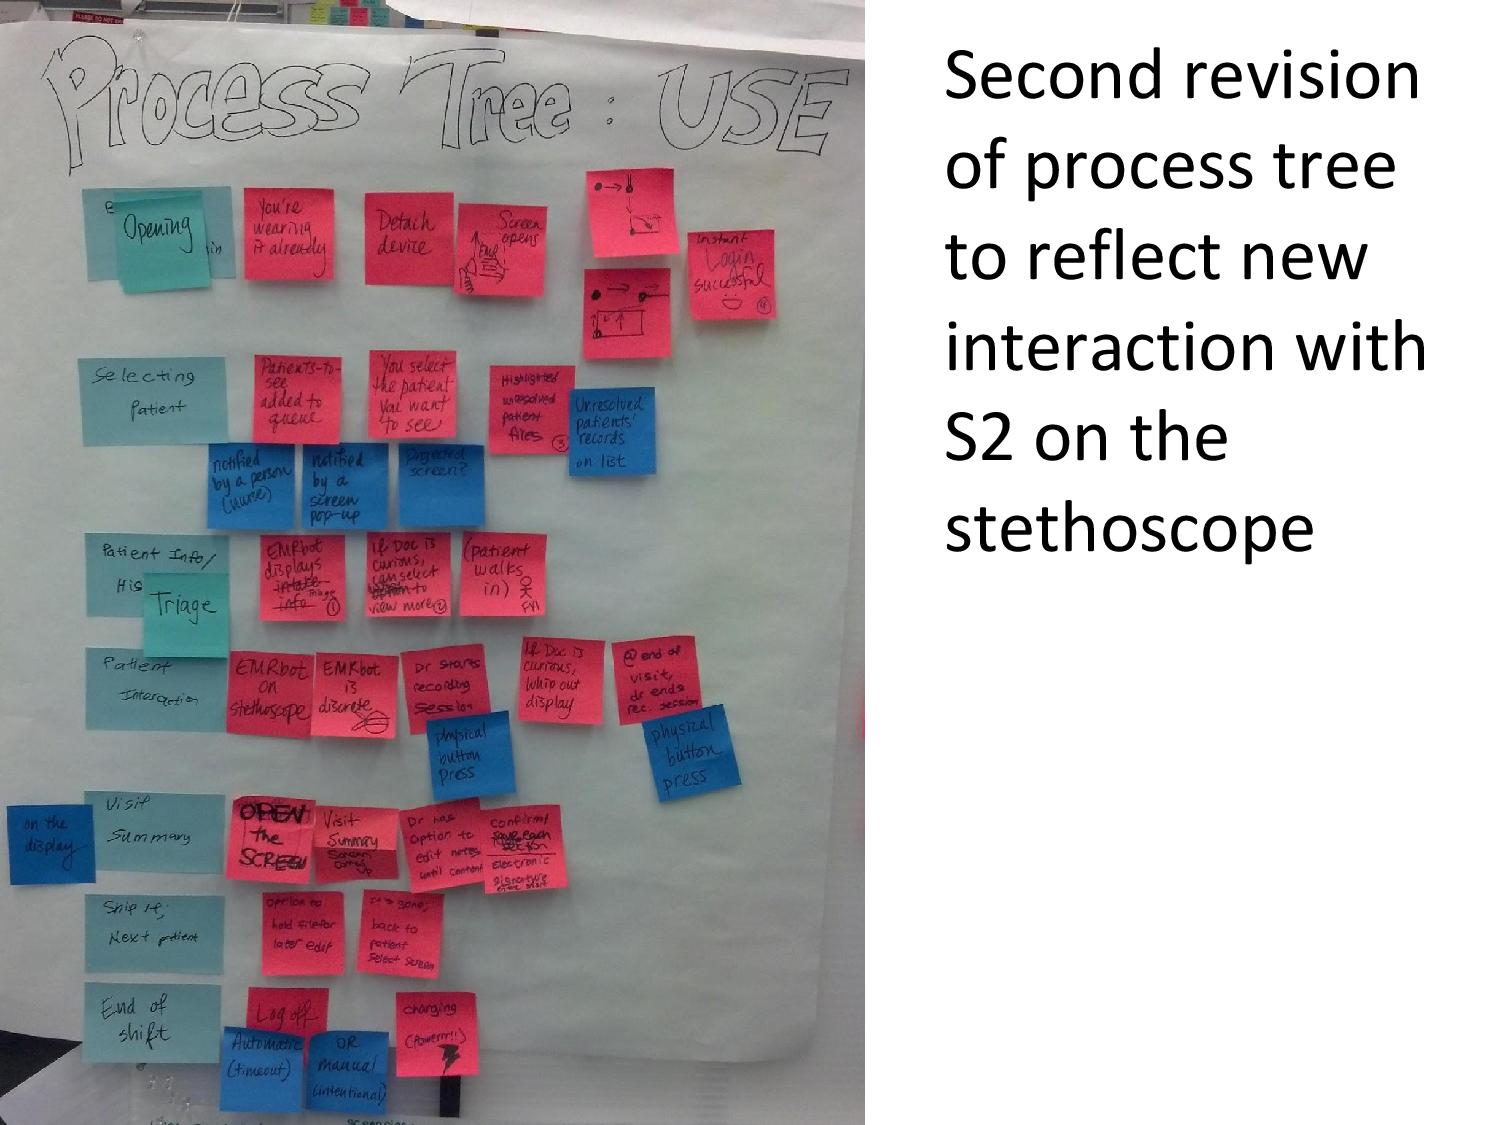 Process Tree : USE
Opening
You're
wearing
it already
Detach
device
Screen
opens
EMR
Instant
Login
successful
4
Selecting
Patient
Patients-to-
see
added to
queue
You select
the patient
you want
to see
Highlighted
unresolved
patient
files
3
Unresolved
patients'
records
on list
notified
by a person
(nurse)
notified
by a
screen
pop-up
Projected
screen?
Patient Info/
His
Triage
EMRbot
displays
intake
info Triage
1
if Doc is
curious,
can select
to
view more
2
(patient
walks
in)
Patient
Interaction
EMRbot
on
stethoscope
EMRbot
is
discrete
Dr starts
recording
session
If Doc is
curious,
whip out
display
@ end of
visit,
dr ends
rec. session
physical
button
press
physical
button
press
on the
display
Visit
Summary
OPEN
the
SCREEN
Visit
Summary
Screen
Dr has
option to
edit notes
until content
confirm/
save each
section
Electronic
signature
Ship it,
Next patient
option to
hold file for
later edit
It's gone,
back to
patient
select screen
End of
shift
Log off
Automatic
(timeout)
OR
manual
(intentional)
charging
(Powerrr!!)
Second revision
of process tree
to reflect new
interaction with
S2 on the
stethoscope